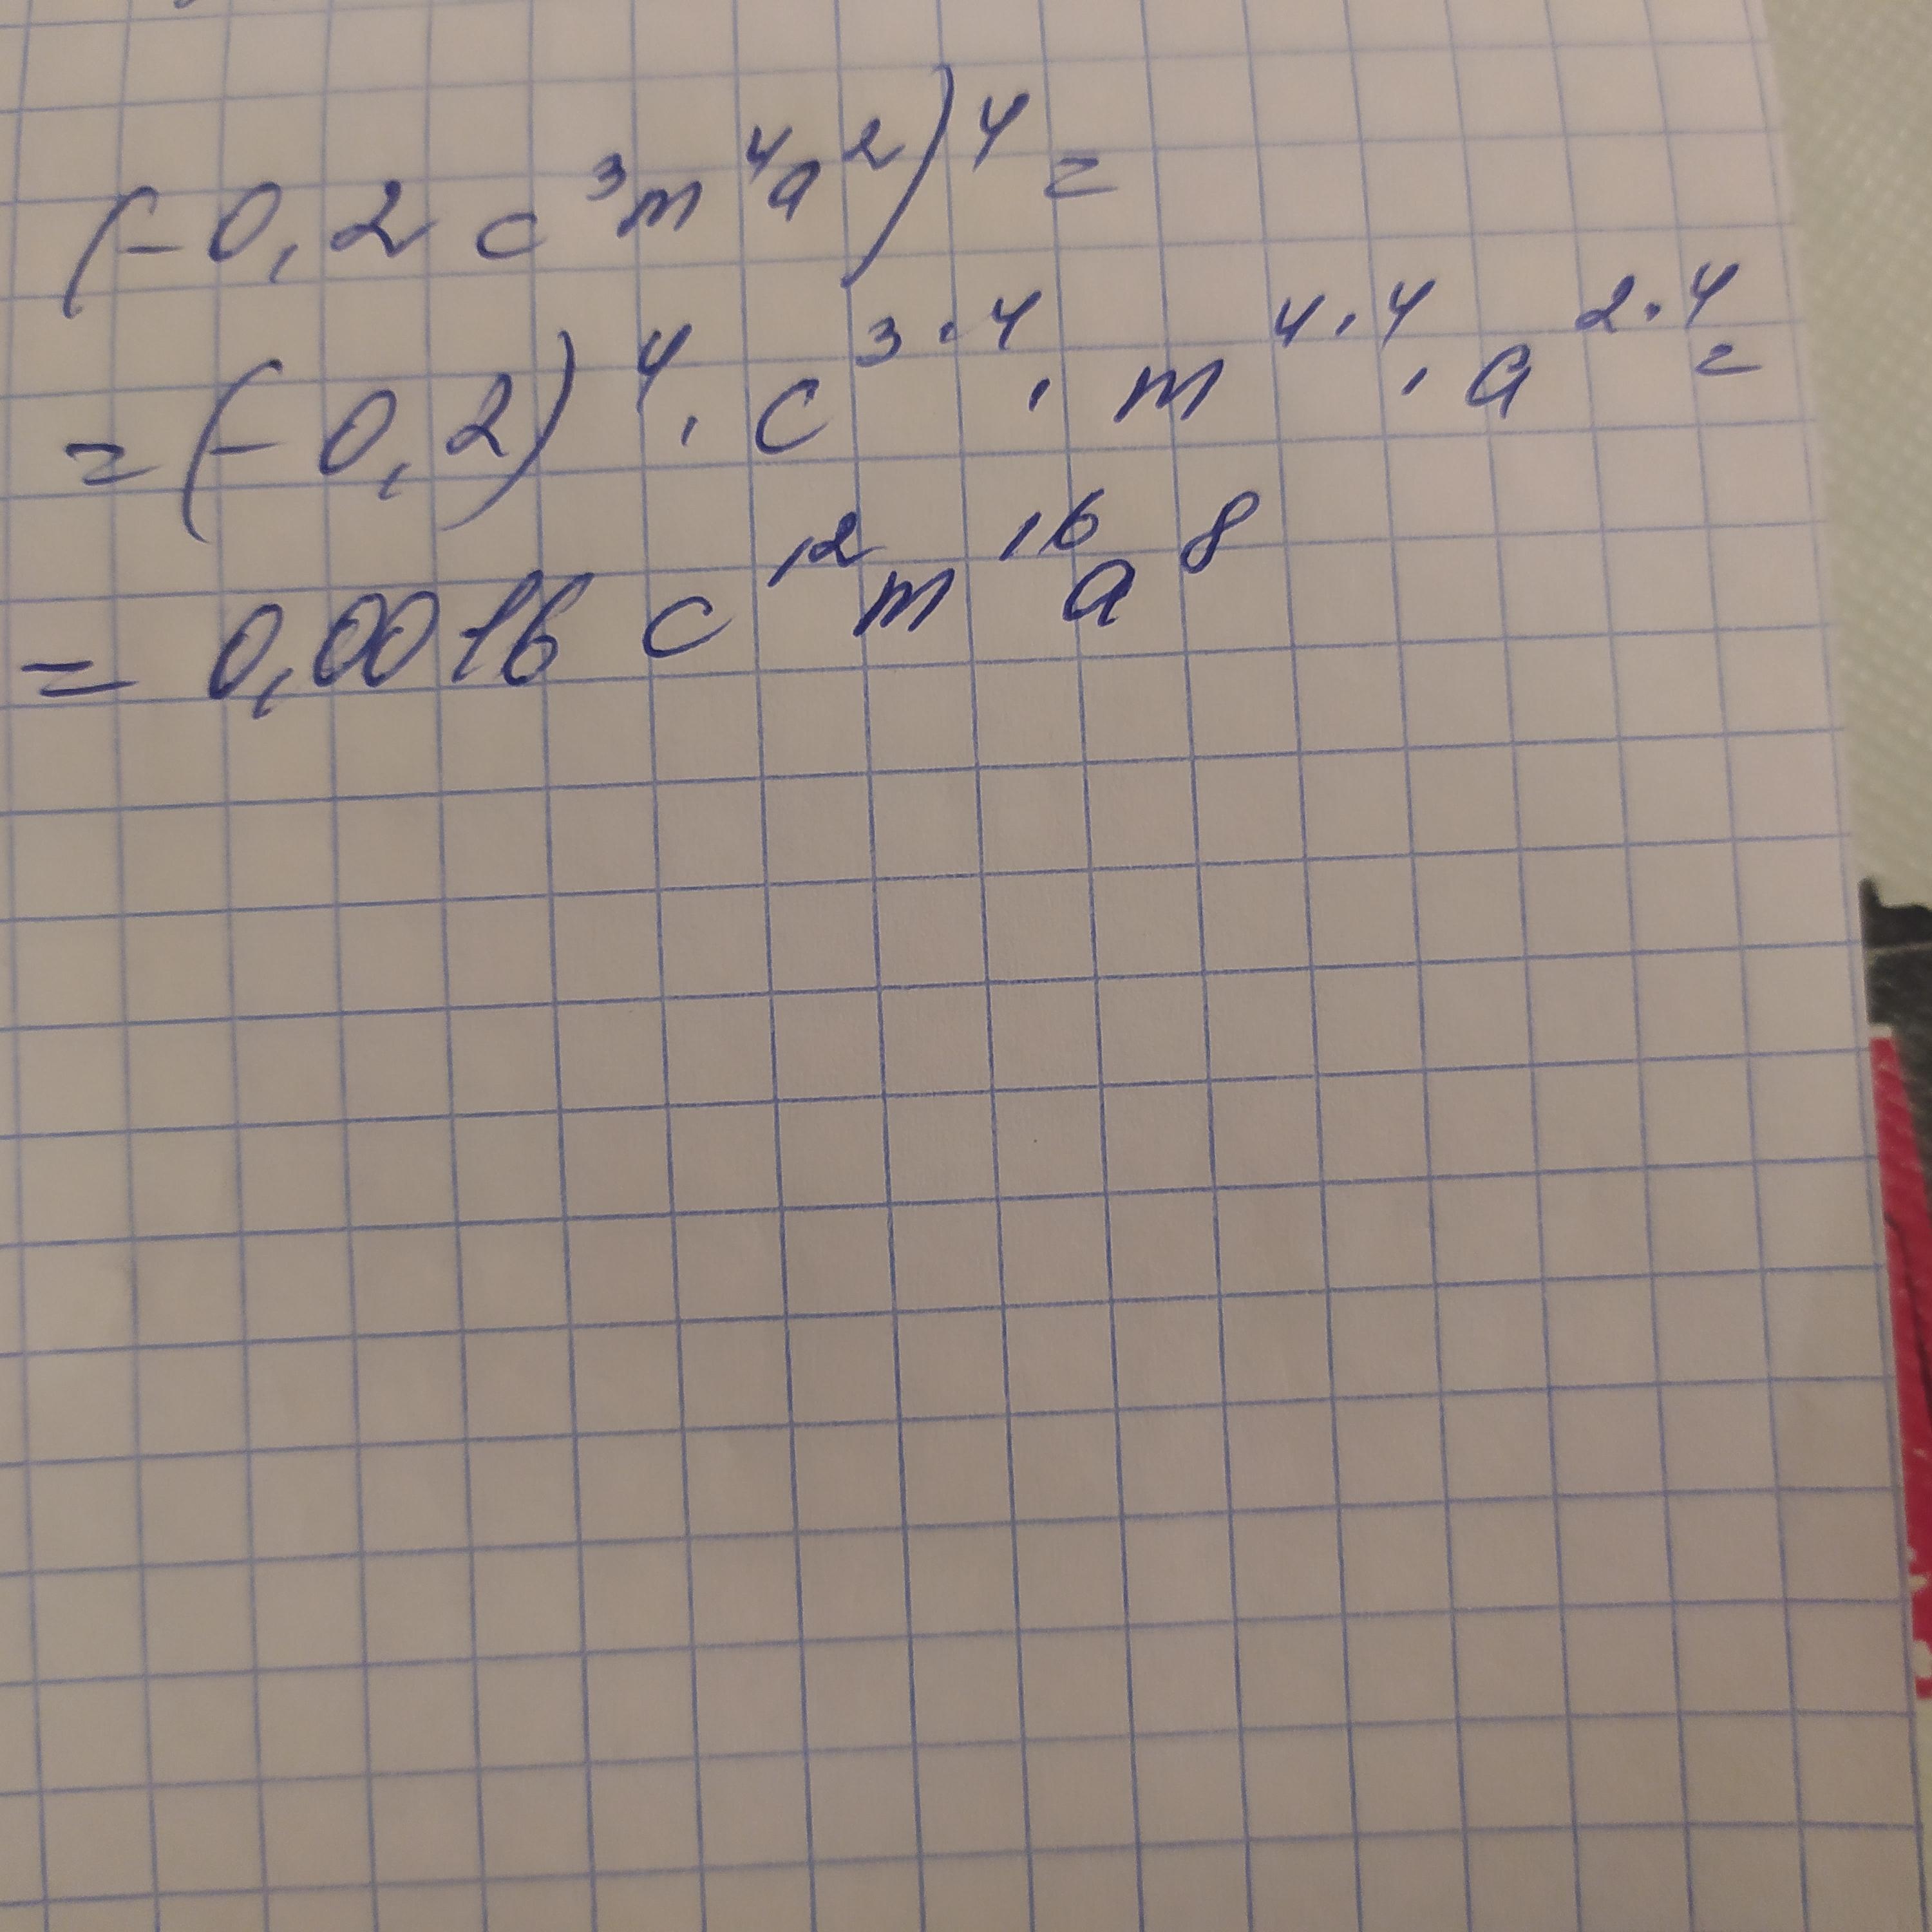 (-0,2 c³m⁴a²)⁴ =
= (-0,2)⁴ · c³·⁴ · m⁴·⁴ · a²·⁴ =
= 0,0016 c¹²m¹⁶a⁸